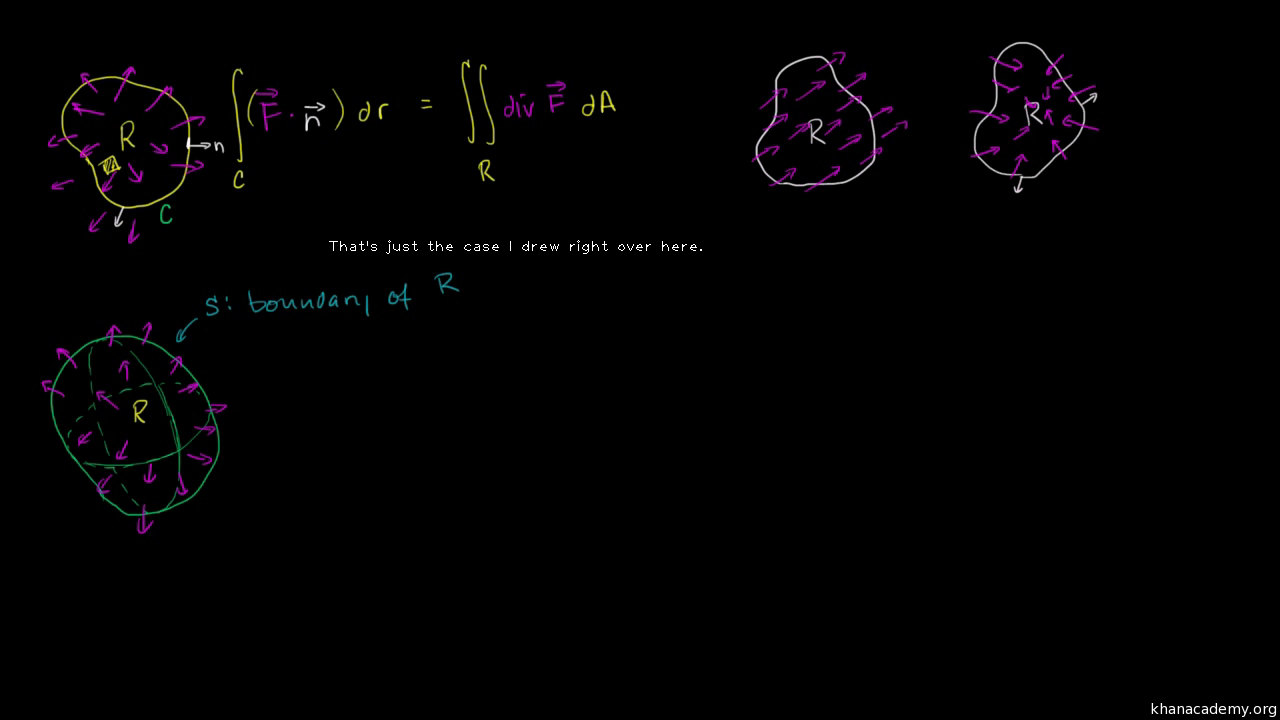 R
n
C
∫_C (F⃗ · n⃗) dr = ∬_R div F⃗ dA
R
R
That's just the case I drew right over here.
S: boundary of R
R
khanacademy.org